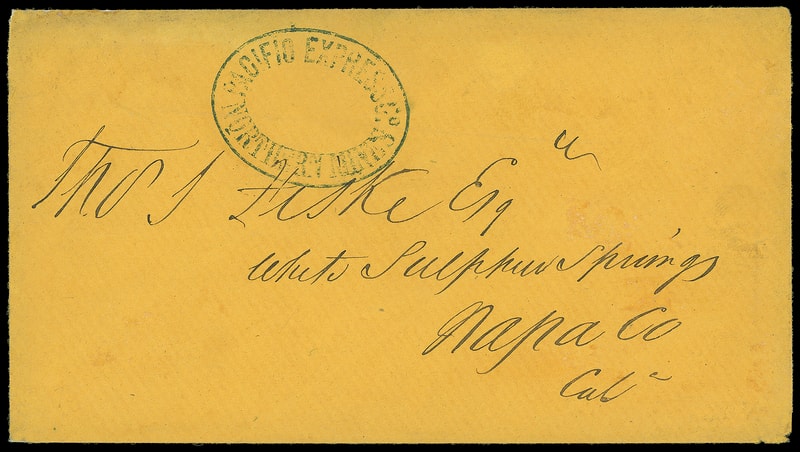 PACIFIC EXPRESS Co.
NORTHERN MINES
Thos S Fiske Esqr
White Sulphur Springs
Napa Co
Cala